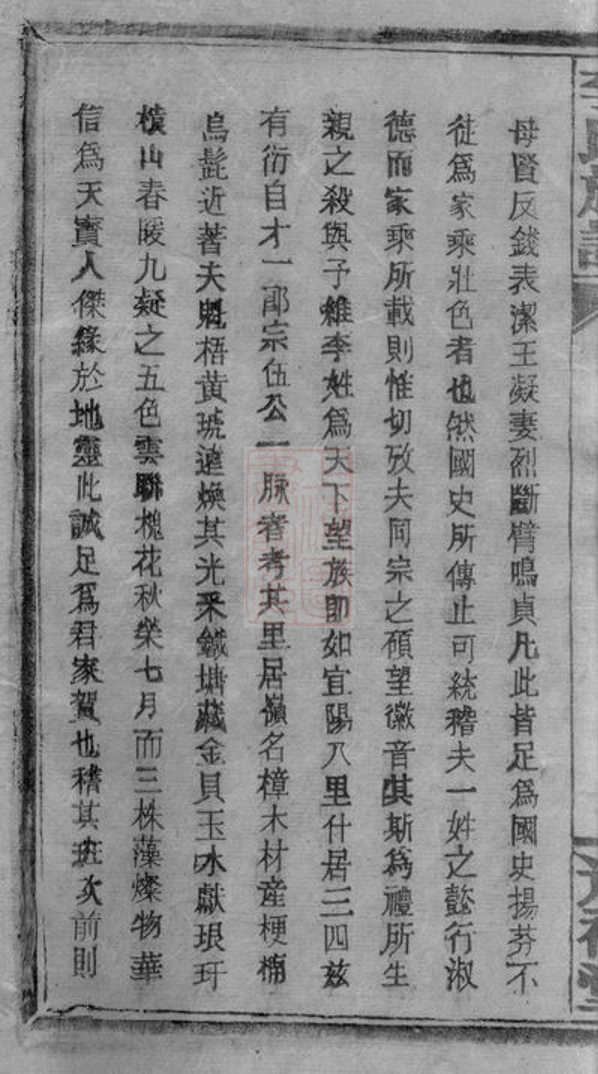 母賢反錢表潔王凝妻烈斷臂鳴貞凡此皆足爲國史揚芬不
徒爲家乘壯色者也然國史所傳止可統稽夫一姓之懿行淑
德而家乘所載則惟切攷夫同宗之碩望徽音其斯爲禮所生
親之殺與予維李姓爲天下望族卽如宜陽八里什居三四玆
有衍自才一郎宗伍公一脉者考其里居嶺名樟木材産梗楠
烏髭近著夫魁梧黄琥遠煥其光采鐵塘藏金貝玉水獻琅玕
橫山春暖九凝之五色雲聯槐花秋榮七月而三株藻燦物華
信爲天寳人傑緣於地靈此誠足爲君家賀也稽其班次前則